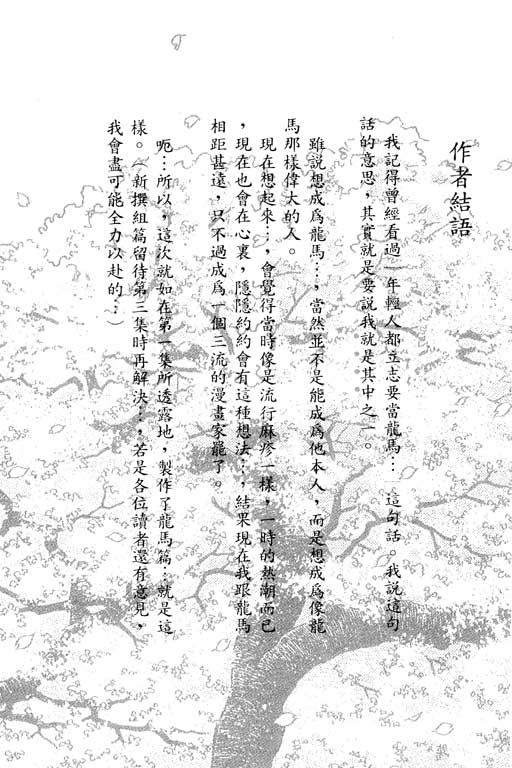 作者結語
我記得曾經看過「年輕人都立志要當龍馬…」這句話。我說這句
話的意思，其實就是要說我就是其中之一。
雖說想成為龍馬…，當然並不是能成為他本人，而是想成為像龍
馬那樣偉大的人。
現在想起來…，會覺得當時像是流行麻疹一樣，一時的熱潮而已
，現在也會在心裏，隱隱約約會有這種想法…，結果現在我跟龍馬
相距甚遠，只不過成為一個三流的漫畫家罷了。
呃…所以，這次就如在第一集所透露地，製作了龍馬篇…就是這
樣。（新撰組篇留待第三集時再解決…，若是各位讀者還有意見，
我會盡可能全力以赴的…）